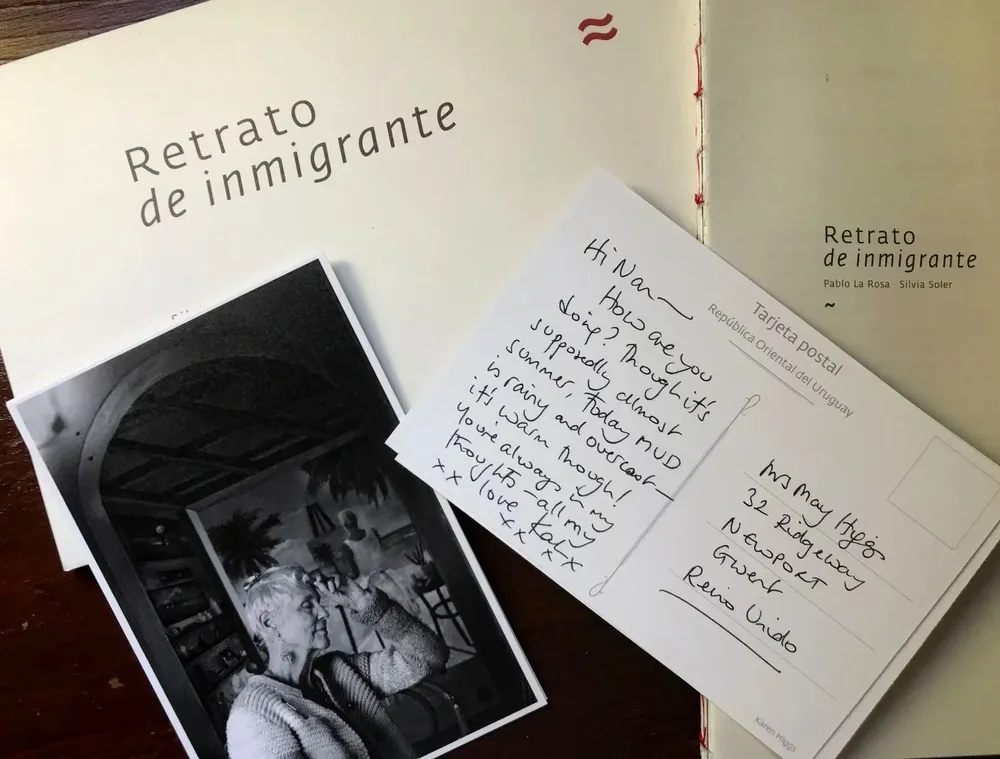 Retrato
de inmigrante
Retrato
de inmigrante
Pablo La Rosa · Silvia Soler
~
Tarjeta postal
República Oriental del Uruguay
Hi Nan —
How are you
doing? Though it's
supposedly almost
summer, today MUD
is rainy and overcast —
it's warm though!
You're always in my
thoughts – all my
love Kar x
x x
x x x x
Mrs May Higgs
32 Ridgeway
NEWPORT
Gwent
Reino Unido
Karen Higgs